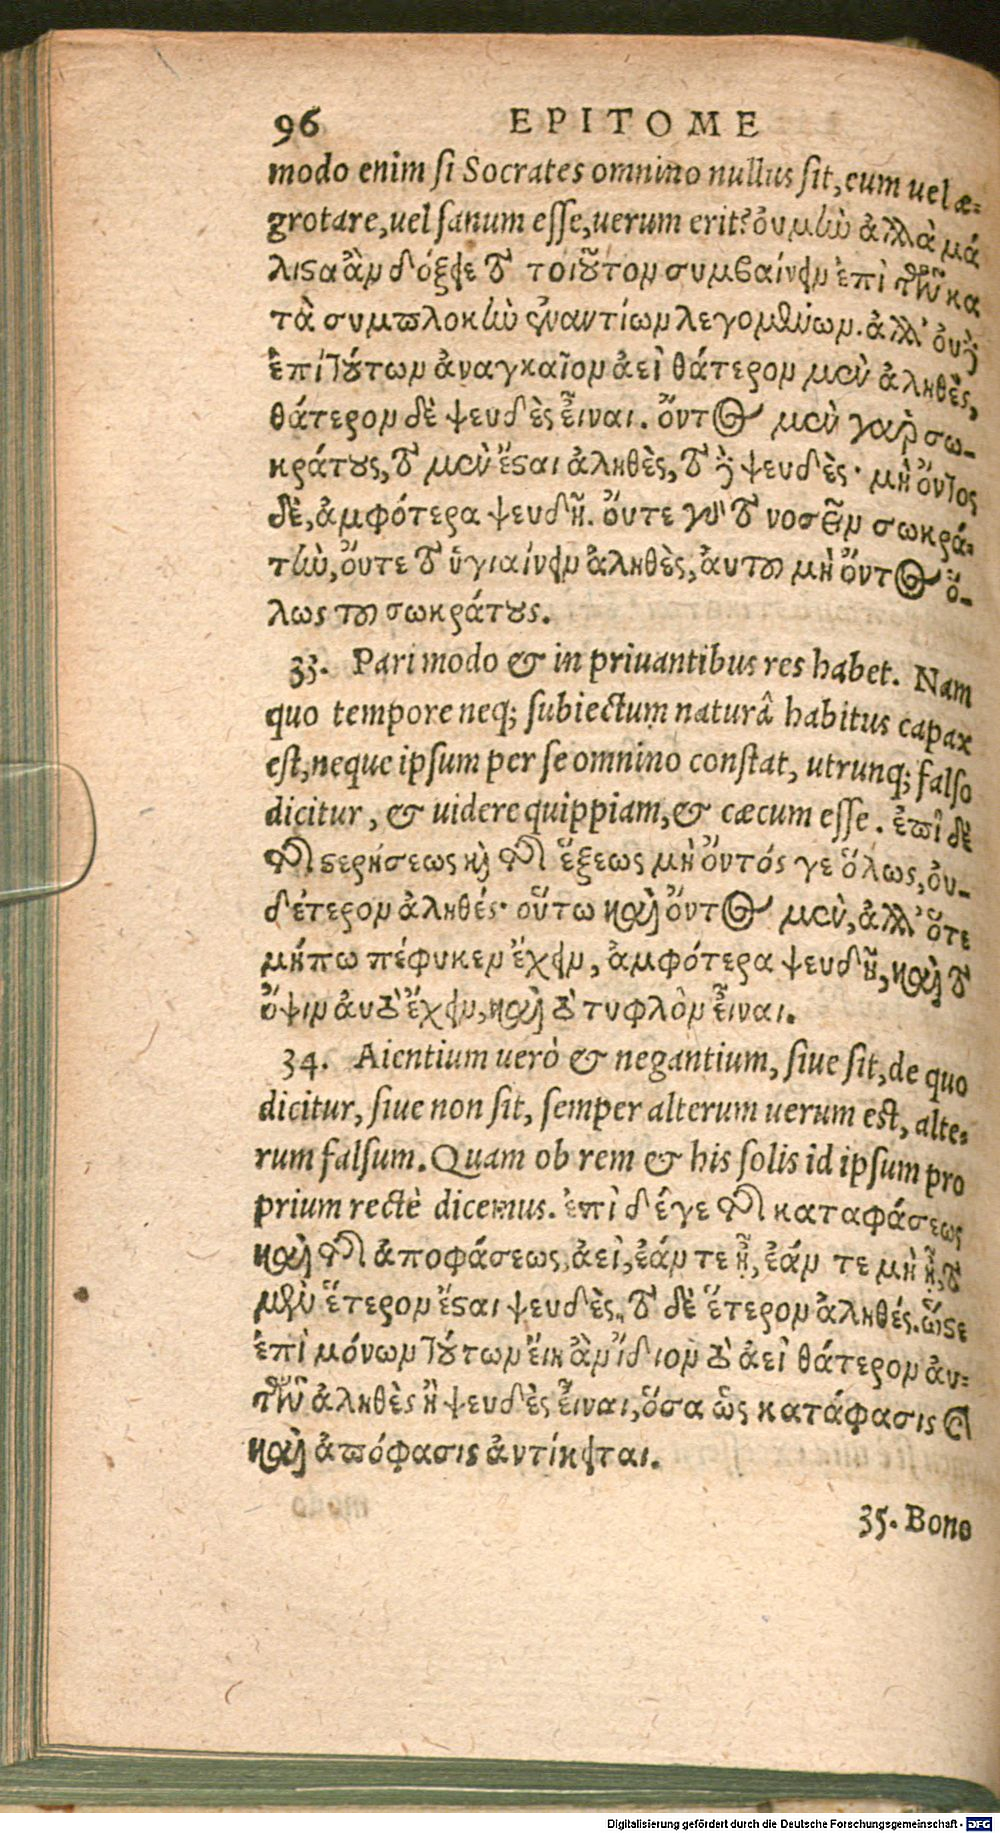 96 EPITOME
modo enim si Socrates omnino nullus sit, cum uel æ-
grotare, uel sanum esse, uerum erit? οὐ μὴν ἀλλὰ μά
λιστα ἂν δόξειε τὸ τοιοῦτον συμβαίνειν ἐπὶ τῶν κα
τὰ συμπλοκὴν ἐναντίων λεγομένων. ἀλλ' οὐδ'
ἐπὶ τούτων ἀναγκαῖον ἀεὶ θάτερον μὲν ἀληθὲς,
θάτερον δὲ ψευδὲς εἶναι. ὄντος μὲν γὰρ σω-
κράτους, τὸ μὲν ἔσται ἀληθὲς, τὸ δὲ ψευδὲς· μὴ ὄντος
δὲ, ἀμφότερα ψευδῆ. οὔτε γὰρ τὸ νοσεῖν σωκρά-
την, οὔτε τὸ ὑγιαίνειν ἀληθὲς, αὐτοῦ μὴ ὄντος ὅ-
λως τοῦ σωκράτους.
33. Pari modo & in priuantibus res habet. Nam
quo tempore neq; subiectum naturâ habitus capax
est, neque ipsum per se omnino constat, utrunq; falso
dicitur, & uidere quippiam, & cæcum esse. ἐπὶ δὲ
τῆς στερήσεως καὶ τῆς ἕξεως μὴ ὄντός γε ὅλως, οὐ-
δέτερον ἀληθές· οὕτω καὶ ὄντος μὲν, ἀλλ' ὅτε
μήπω πέφυκεν ἔχειν, ἀμφότερα ψευδῆ, καὶ τὸ
ὄψιν αὐτὸ ἔχειν, καὶ τὸ τυφλὸν εἶναι.
34. Aientium uerò & negantium, siue sit, de quo
dicitur, siue non sit, semper alterum uerum est, alte-
rum falsum. Quam ob rem & his solis id ipsum pro
prium rectè dicemus. ἐπὶ δέ γε τῆς καταφάσεως
καὶ τῆς ἀποφάσεως, ἀεὶ, ἐάν τε ᾖ, ἐάν τε μὴ ᾖ, τὸ
μὲν ἕτερον ἔσται ψευδὲς, τὸ δὲ ἕτερον ἀληθές. ὥστε
ἐπὶ μόνων τούτων εἴη ἂν ἴδιον τὸ ἀεὶ θάτερον αὐ-
τῶν ἀληθὲς ἢ ψευδὲς εἶναι, ὅσα ὡς κατάφασις
καὶ ἀπόφασις ἀντίκειται.
35. Bono
Digitalisierung gefördert durch die Deutsche Forschungsgemeinschaft - DFG